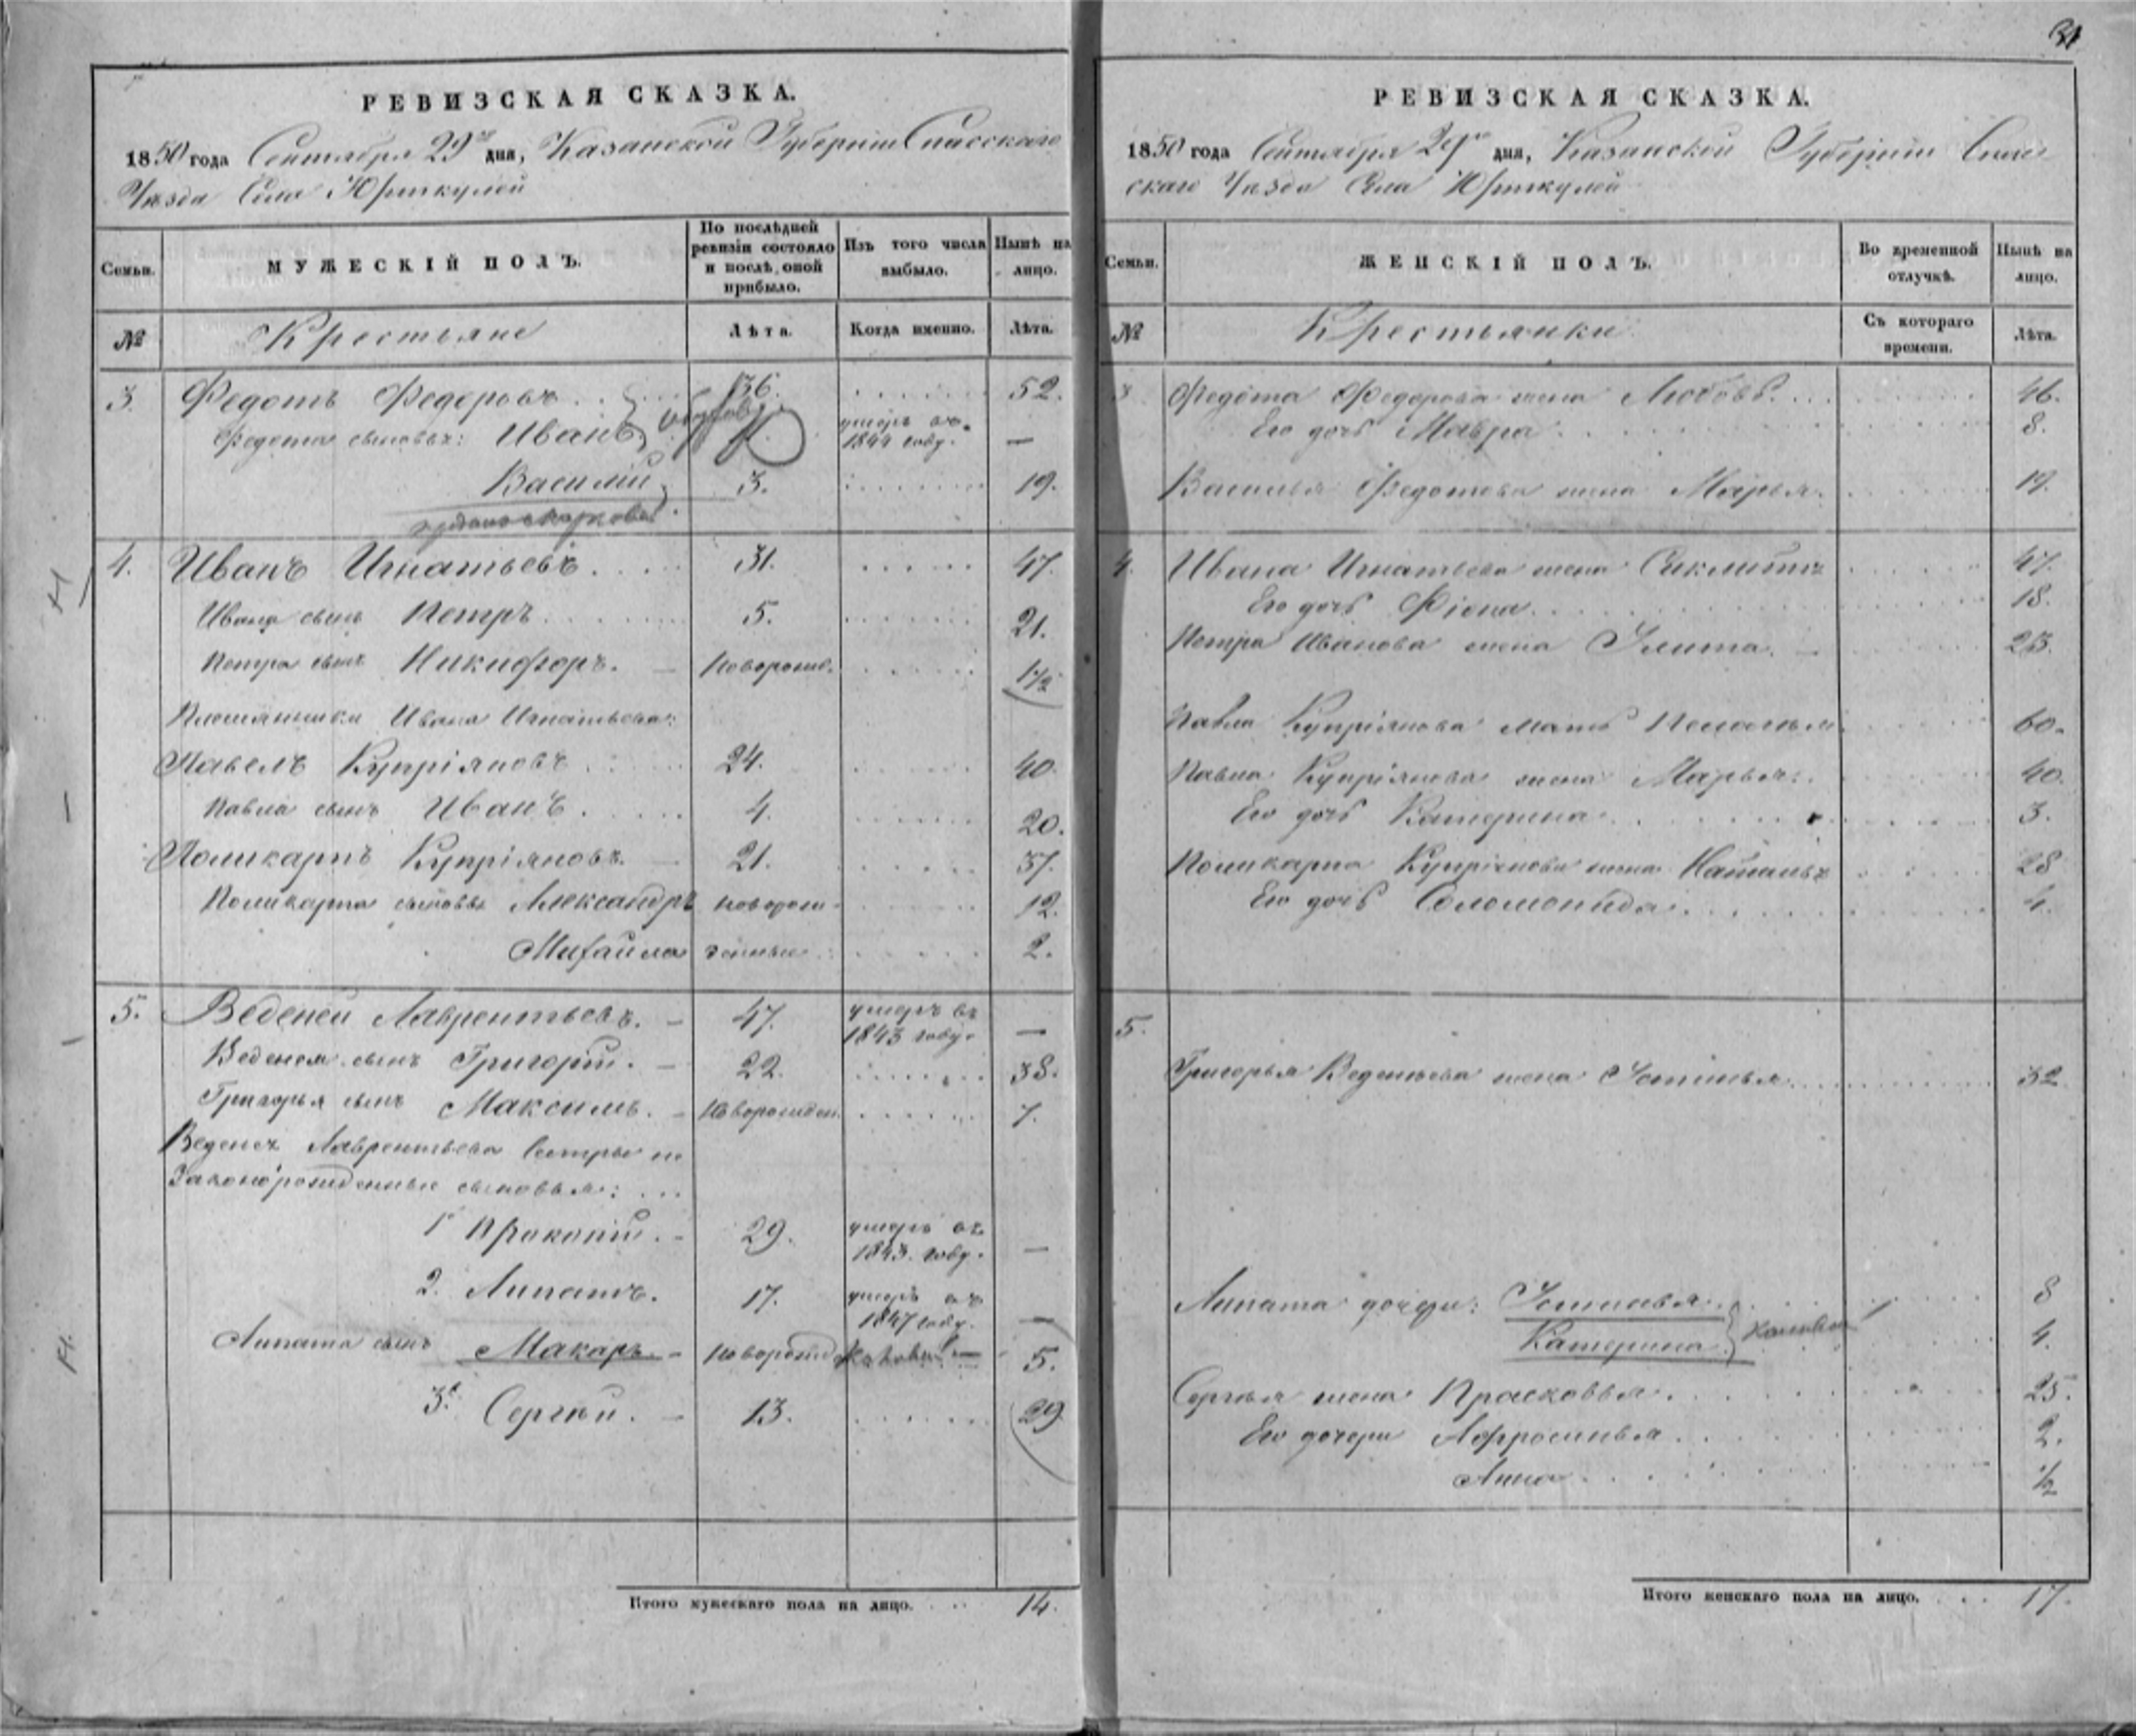 РЕВИЗСКАЯ СКАЗКА.
1850 года Сентября 29го дня, Казанской Губернiи Спасскаго
Уѣзда Села Юрткулей
Семьи.
МУЖЕСКІЙ ПОЛЪ.
По послѣдней ревизіи состояло и послѣ оной прибыло.
Изъ того числа выбыло.
Нынѣ на лицо.
№
Крестьяне
Лѣта.
Когда именно.
Лѣта.
3. Федотъ Федоровъ 36. 52.
Федота сыновья: Иванъ умеръ въ 1844 году. —
Василий 3. 19.
4. Иванъ Игнатьевъ 31. 47.
Ивана сынъ Петръ 5. 21.
Петра сынъ Никифоръ. новорожд. 1 1/2
Племянники Ивана Игнатьева:
Павелъ Купріяновъ 24. 40.
Павла сынъ Иванъ. 4. 20.
Поликарпъ Купріяновъ. 21. 37.
Поликарпа сыновья Александръ новорож- 12.
Михайла денные 2.
5. Веденей Лаврентьевъ. 47. умеръ въ 1843 году. —
Веденея сынъ Григорій. 22. 38.
Григорья сынъ Максимъ. новорожден. 7.
Веденея Лаврентьева Сестры не
Законорожденные сыновья:
1й Прокопій. 29. умеръ въ 1843. году. —
2. Липатъ. 17. умеръ въ 1847 году. —
Липата сынъ Макаръ. новорожд 5.
3й Сергѣй. 13. 29
Итого мужескаго пола на лицо. 14.
31
РЕВИЗСКАЯ СКАЗКА.
1850 года Сентября 29го дня, Казанской Губерніи Спас-
скаго Уѣзда Села Юрткулей
Семьи.
ЖЕНСКІЙ ПОЛЪ.
Во временной отлучкѣ.
Нынѣ на лицо.
№
Крестьянки
Съ котораго времени.
Лѣта.
3 Федота Федорова жена Любовь. 46.
Его дочь Мавра. 8.
Василья Федотова жена Марья. 19.
4. Ивана Игнатьева жена 47.
Его дочь Фіона. 18.
Петра Иванова жена Улита. 23.
Павла Купріянова мать 60.
Павла Купріянова жена Марья. 40.
Его дочь Катерина. 3.
Поликарпа Купріянова жена Наталья 28
Его дочь Соломонида. 4.
5.
Григорья Веденеева жена Устинья 32
Липата дочери: Устинья 8
Катерина 4.
Сергѣя жена Прасковья. 25.
Его дочери Афросинья 2.
Анна. 1/2
Итого женскаго пола на лицо. 17.